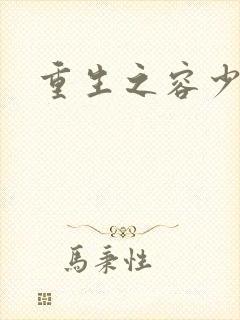 重生之容少
馬秉性